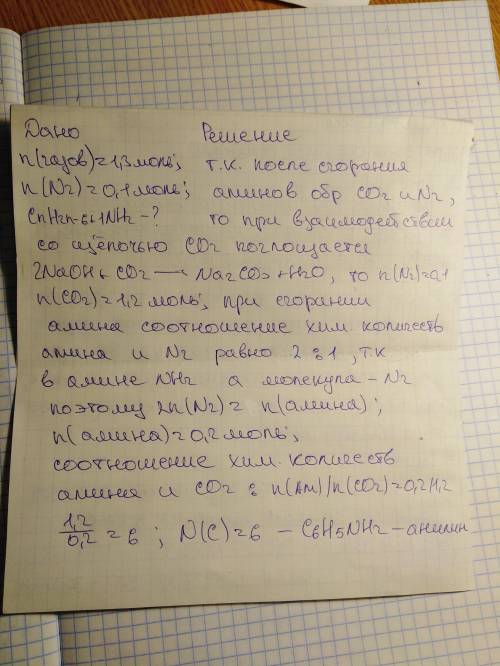 Дано Решение
n(газов)=1,3моль; т.к. после сгорания
n(N2)=0,1моль; аминов обр CO2 и N2,
CnH2n-6+1NH2-? то при взаимодействии
со щёлочью CO2 поглощается
2NaOH+CO2—Na2CO3+H2O, то n(N2)=0,1
n(CO2)=1,2моль; при сгорании
амина соотношение хим. количеств
амина и N2 равно 2:1, т.к.
в амине NH2 а молекула-N2
поэтому 2n(N2)= n(амина);
n(амина)=0,2моль;
соотношение хим. количеств
амина и CO2: n(Ам)/n(CO2)=0,2/1,2
1,2/0,2=6; N(C)=6 - C6H5NH2-анилин